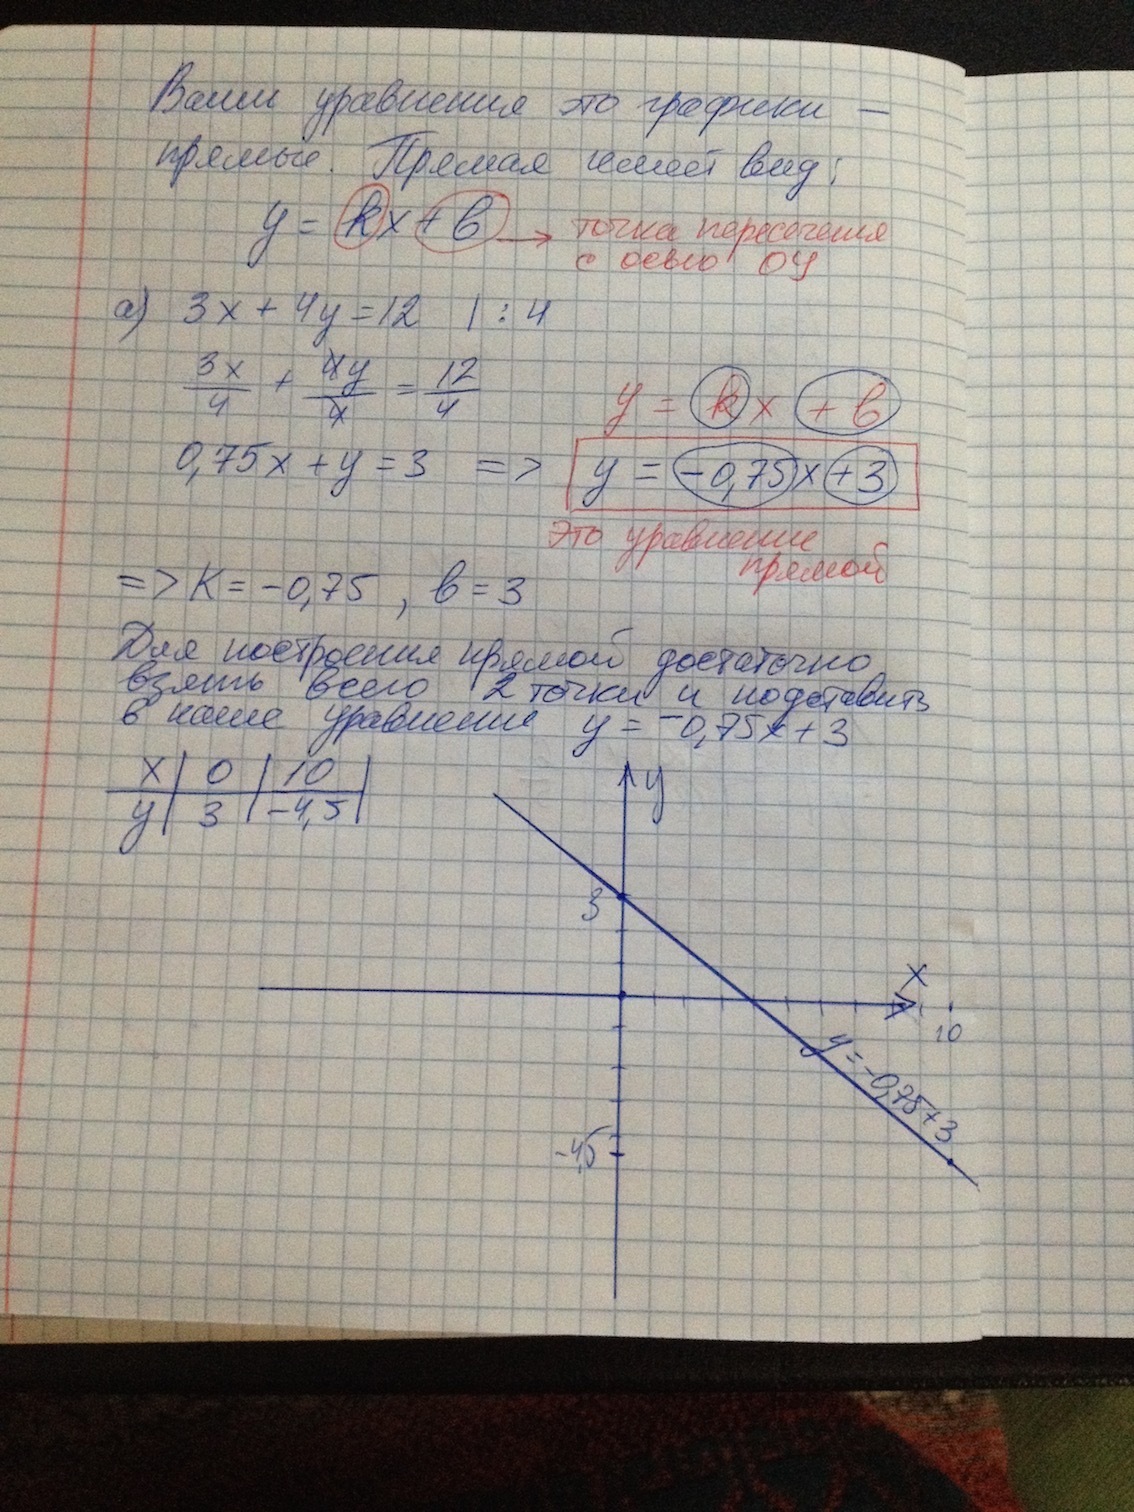 Ваши уравнения это графики —
прямые. Прямая имеет вид:
y = kx + b → точка пересечения
с осью ОУ
а) 3x + 4y = 12 | : 4
3x/4 + 4y/4 = 12/4
y = kx + b
0,75x + y = 3 => y = -0,75x + 3
Это уравнение
прямой
=> K = -0,75 , b = 3
Для построения прямой достаточно
взять всего 2 точки и подставить
в наше уравнение y = -0,75x + 3
x | 0 | 10 |
y | 3 | -4,5 |
y
3
x
10
y = -0,75+3
-4,5